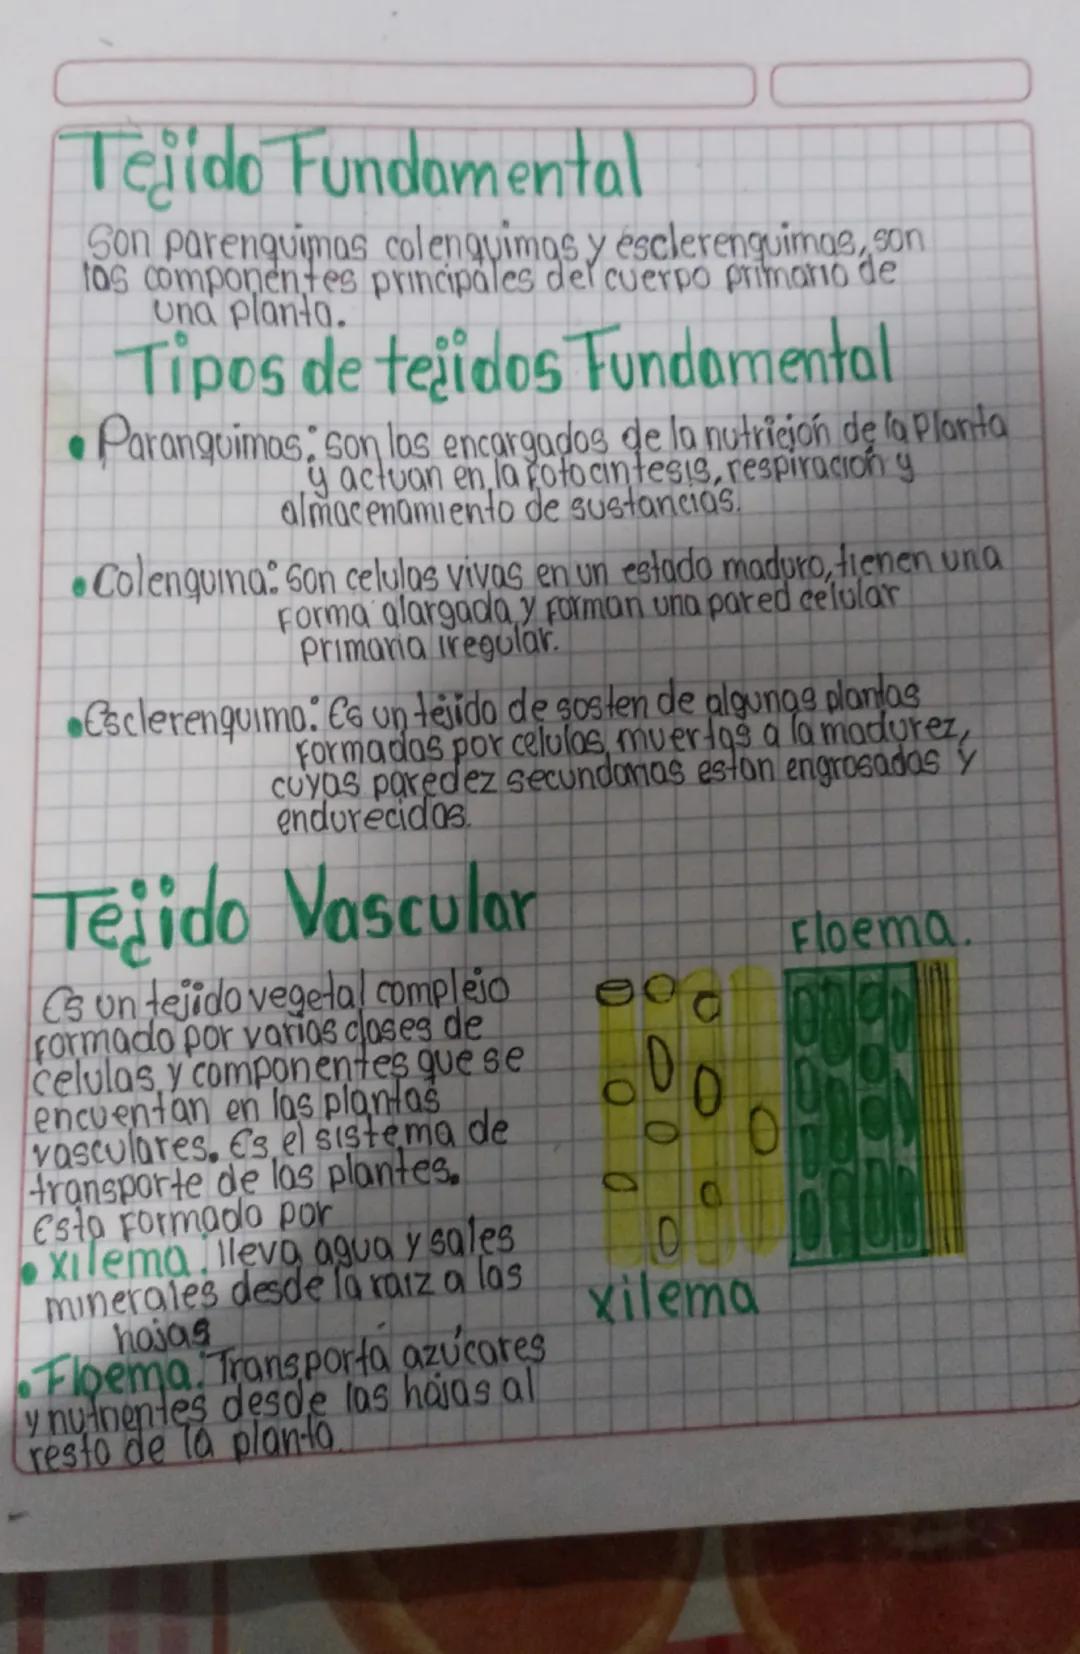 Tejido Fundamental
Son parenquimas colenquimas y esclerenquimas, son
los componentes principales del cuerpo primario de
una planta.
Tipos de tejidos Fundamental
• Paranquimas: son los encargados de la nutrición de la Planta
y actuan en la fotocintesis, respiración y
almacenamiento de sustancias.
• Colenquina: Son celulas vivas en un estado maduro, tienen una
forma alargada y forman una pared celular
primaria iregular.
• Esclerenquima: Es un tejido de sosten de algunas plantas
formadas por celulas muertas a la madurez,
cuyas paredez secundarias estan engrosadas y
endurecidas.
Tejido Vascular
Floema.
Es un tejido vegetal complejo
formado por varias clases de
celulas y componentes que se
encuentan en las plantas
vasculares. Es el sistema de
transporte de las plantes.
Esta formado por
• xilema: lleva agua y sales
minerales desde la raiz a las
hojas
xilema
• Floema: Transporta azúcares
y nutrientes desde las hojas al
resto de la planta.